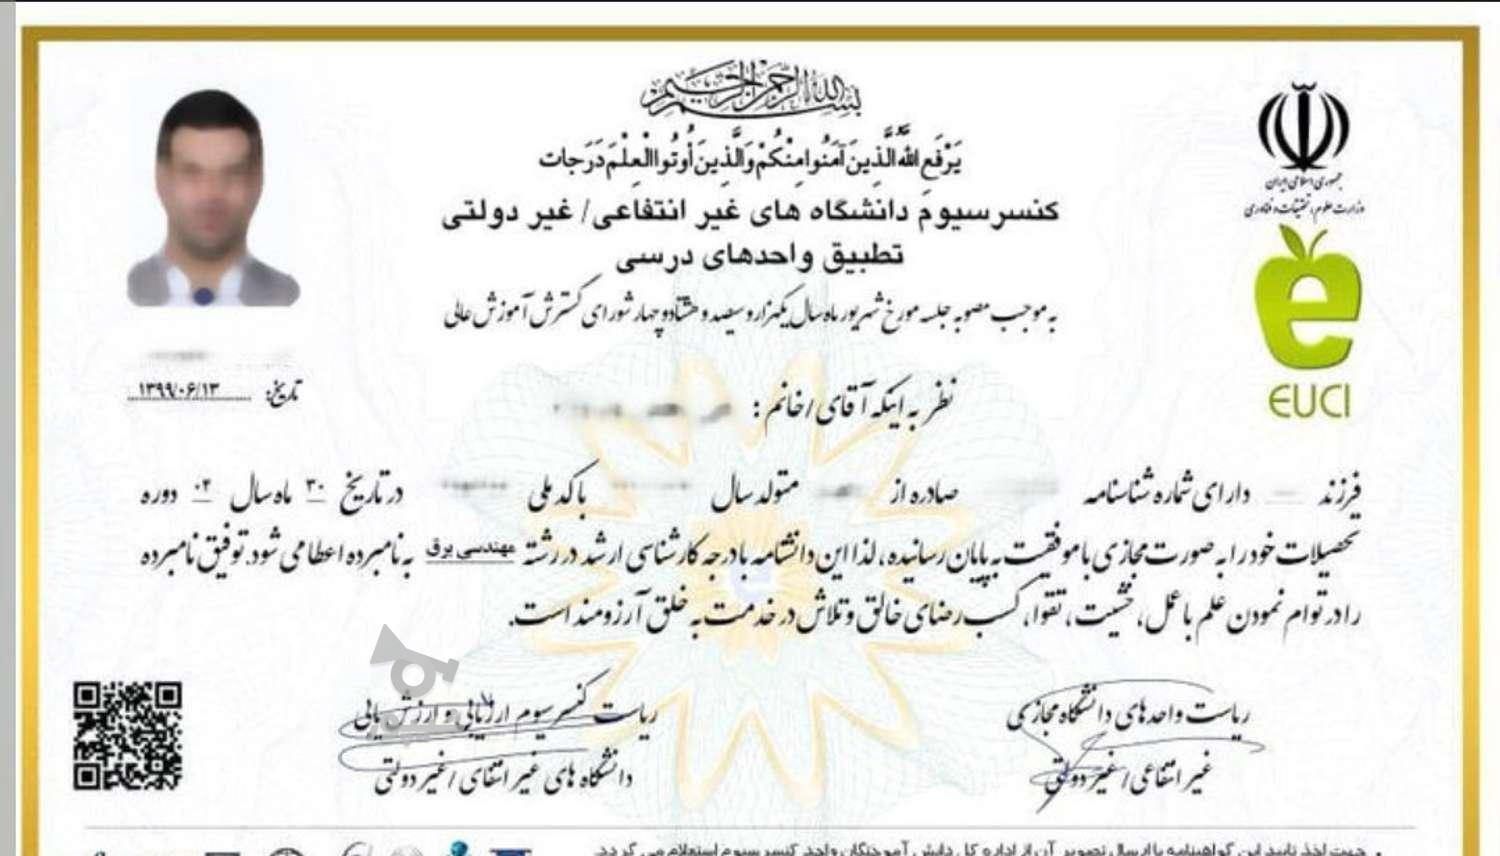 بسم الله الرحمن الرحیم
یَرْفَعِ اللَّهُ الَّذِینَ آمَنُوا مِنْکُمْ وَالَّذِینَ أُوتُوا الْعِلْمَ دَرَجات
کنسرسیوم دانشگاه های غیر انتفاعی/ غیر دولتی
تطبیق واحدهای درسی
به موجب مصوبه جلسه مورخ شهریور ماه سال یکهزار و سیصد و هشتاد و چهار شورای گسترش آموزش عالی
جمهوری اسلامی ایران
وزارت علوم، تحقیقات و فناوری
e
EUCI
تاریخ: ۱۳۹۹/۰۶/۱۳
نظر به اینکه آقای/خانم :
فرزند دارای شماره شناسنامه صادره از متولد سال با کد ملی در تاریخ ۳۰ ماه سال ۰۲ دوره
تحصیلات خود را به صورت مجازی با موفقیت به پایان رسانیده، لذا این دانشنامه با درجه کارشناسی ارشد در رشته مهندسی برق به نامبرده اعطا می شود. توفیق نامبرده
را در توام نمودن علم با عمل، خشیت، تقوا، کسب رضای خالق و تلاش در خدمت به خلق آرزومند است.
ریاست واحدهای دانشگاه مجازی
غیر انتفاعی/غیر دولتی
ریاست کنسرسیوم ارزیابی و ارزش یابی
دانشگاه های غیر انتفای/غیر دولتی
جهت اخذ تایید این گواهینامه با ارسال تصویر آن از اداره کل دانش آموختگان واحد کنسرسیوم استعلام می گردد.